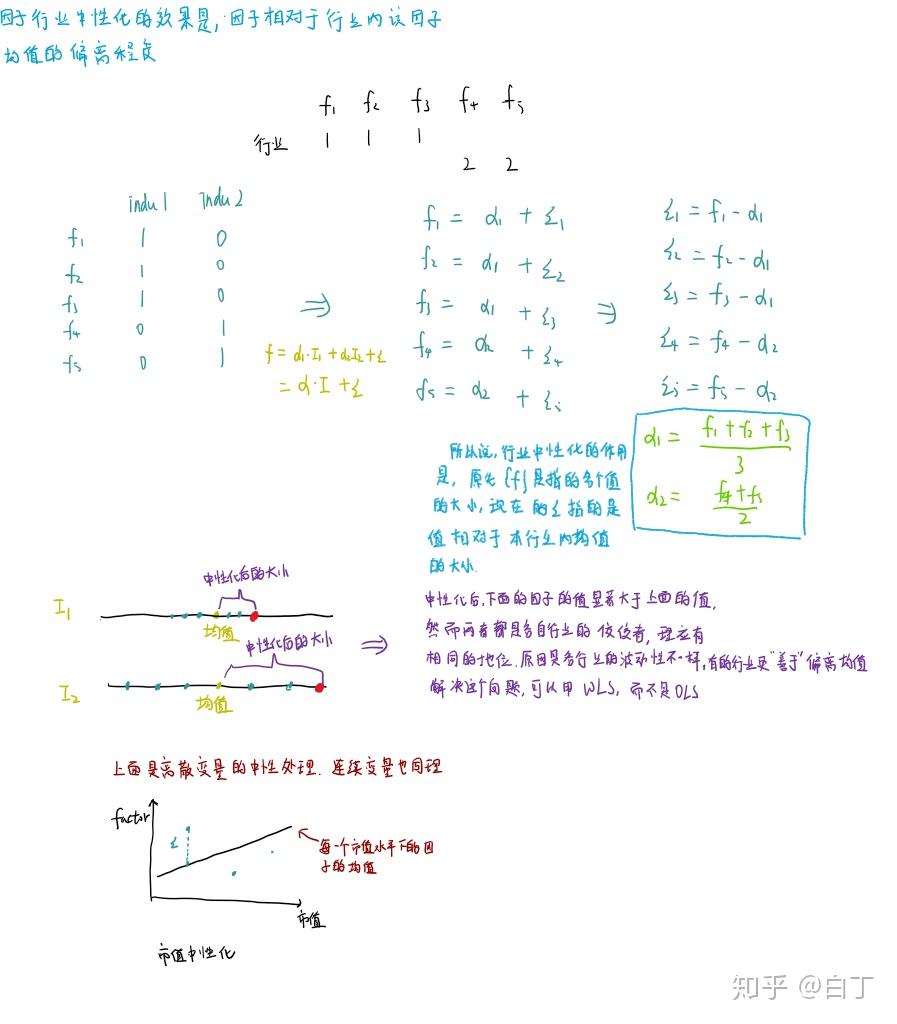 因子行业中性化的效果是,因子相对于行业内该因子
均值的偏离程度
f₁ f₂ f₃ f₄ f₅
行业 1 1 1
2 2
indu 1 Indu 2
f₁ 1 0
f₂ 1 0
f₃ 1 0
f₄ 0 1
f₅ 0 1
⇒
f = α₁·I₁ + α₂I₂ + ξ
= α·I + ξ
f₁ = α₁ + ξ₁
f₂ = α₁ + ξ₂
f₃ = α₁ + ξ₃
f₄ = α₂ + ξ₄
f₅ = α₂ + ξ₅
⇒
ξ₁ = f₁ - α₁
ξ₂ = f₂ - α₁
ξ₃ = f₃ - α₁
ξ₄ = f₄ - α₂
ξ₅ = f₅ - α₂
α₁ = (f₁ + f₂ + f₃) / 3
α₂ = (f₄ + f₅) / 2
所以说,行业中性化的作用
是,原先{f}是指的各个值
的大小,现在的ξ指的是
值相对于本行业内均值
的大小.
中性化后的大小
I₁
均值
中性化后的大小
I₂
均值
⇒
中性化后,下面的因子的值显著大于上面的值,
然而两者都是各自行业的佼佼者,理应有
相同的地位.原因是各行业的波动性不一样,有的行业更"善于"偏离均值
解决这个问题,可以用 WLS, 而不是OLS
上面是离散变量的中性处理.连续变量也同理
factor
ξ
每一个市值水平下的因
子的均值
市值
市值中性化
知乎 @白丁